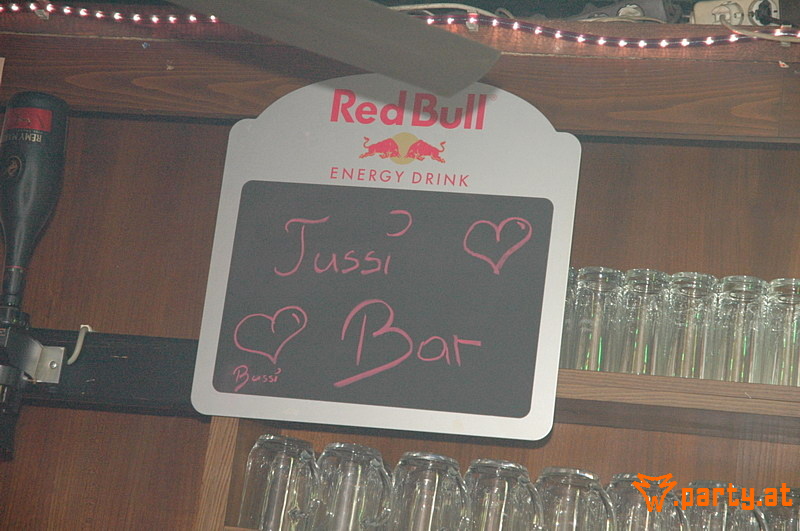 Red Bull
ENERGY DRINK
Tussi
Bar
Bussi
RÉMY MA
party.at